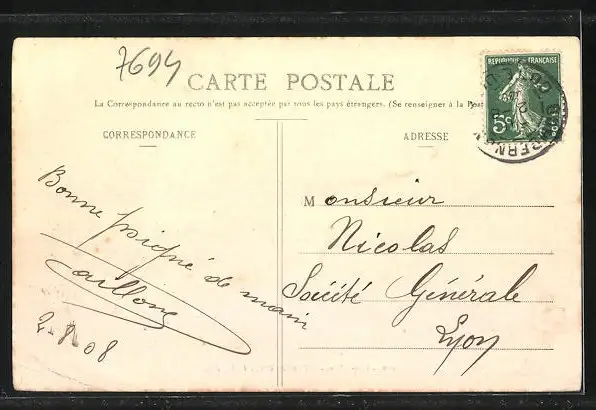 7694
CARTE POSTALE
La Correspondance au recto n'est pas acceptée par tous les pays étrangers. (Se renseigner à la Post
CORRESPONDANCE
ADRESSE
REPUBLIQUE FRANÇAISE
5c
Monsieur
Nicolas
Société Générale
Lyon
Bonne poigné de main
08